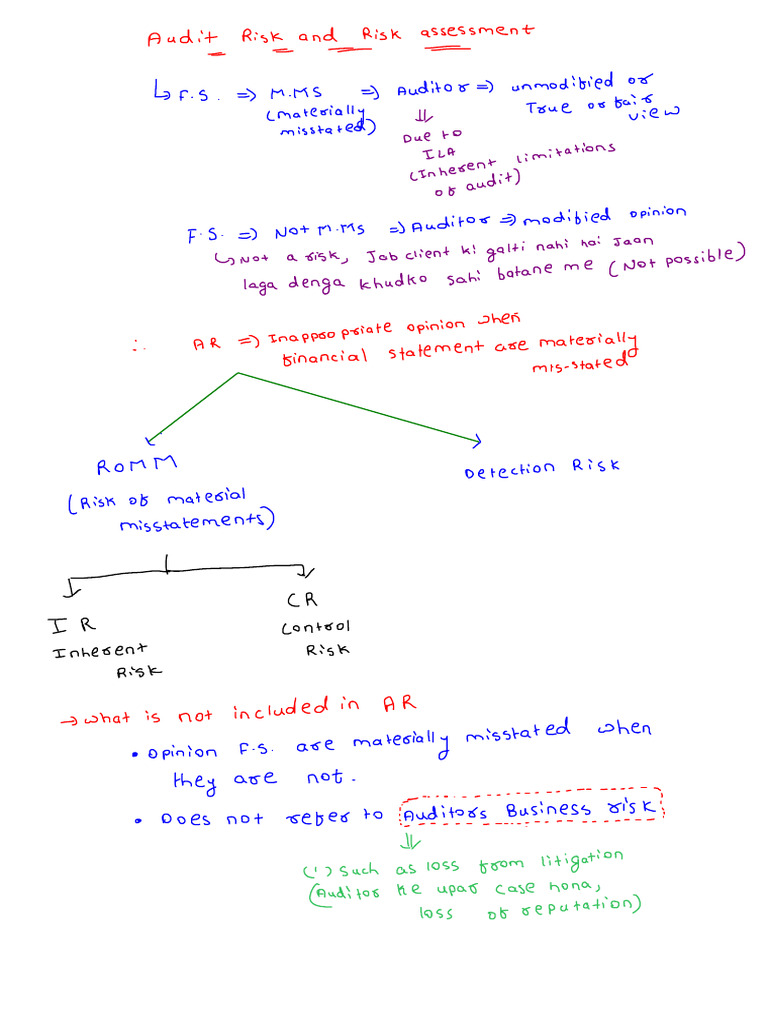 Audit Risk and Risk assessment
↳ F.S. => M.MS => Auditor => unmodified or
(materially misstated)
True or fair view
Due to
ILA
(Inherent limitations
of audit)
F.S. => Not M.MS => Auditor => modified opinion
↳ Not a risk, Job client ki galti nahi hai Jaan
laga denga khudko sahi batane me (Not possible)
∴ AR => Inappropriate opinion when
financial statement are materially
mis-stated
ROMM
Detection Risk
(Risk of material
misstatements)
IR
CR
Inherent
Risk
Control
Risk
→ what is not included in AR
• Opinion F.S. are materially misstated when
they are not.
• Does not refer to Auditors Business risk
(1) Such as loss from litigation
(Auditor ke upar case hona,
loss of reputation)